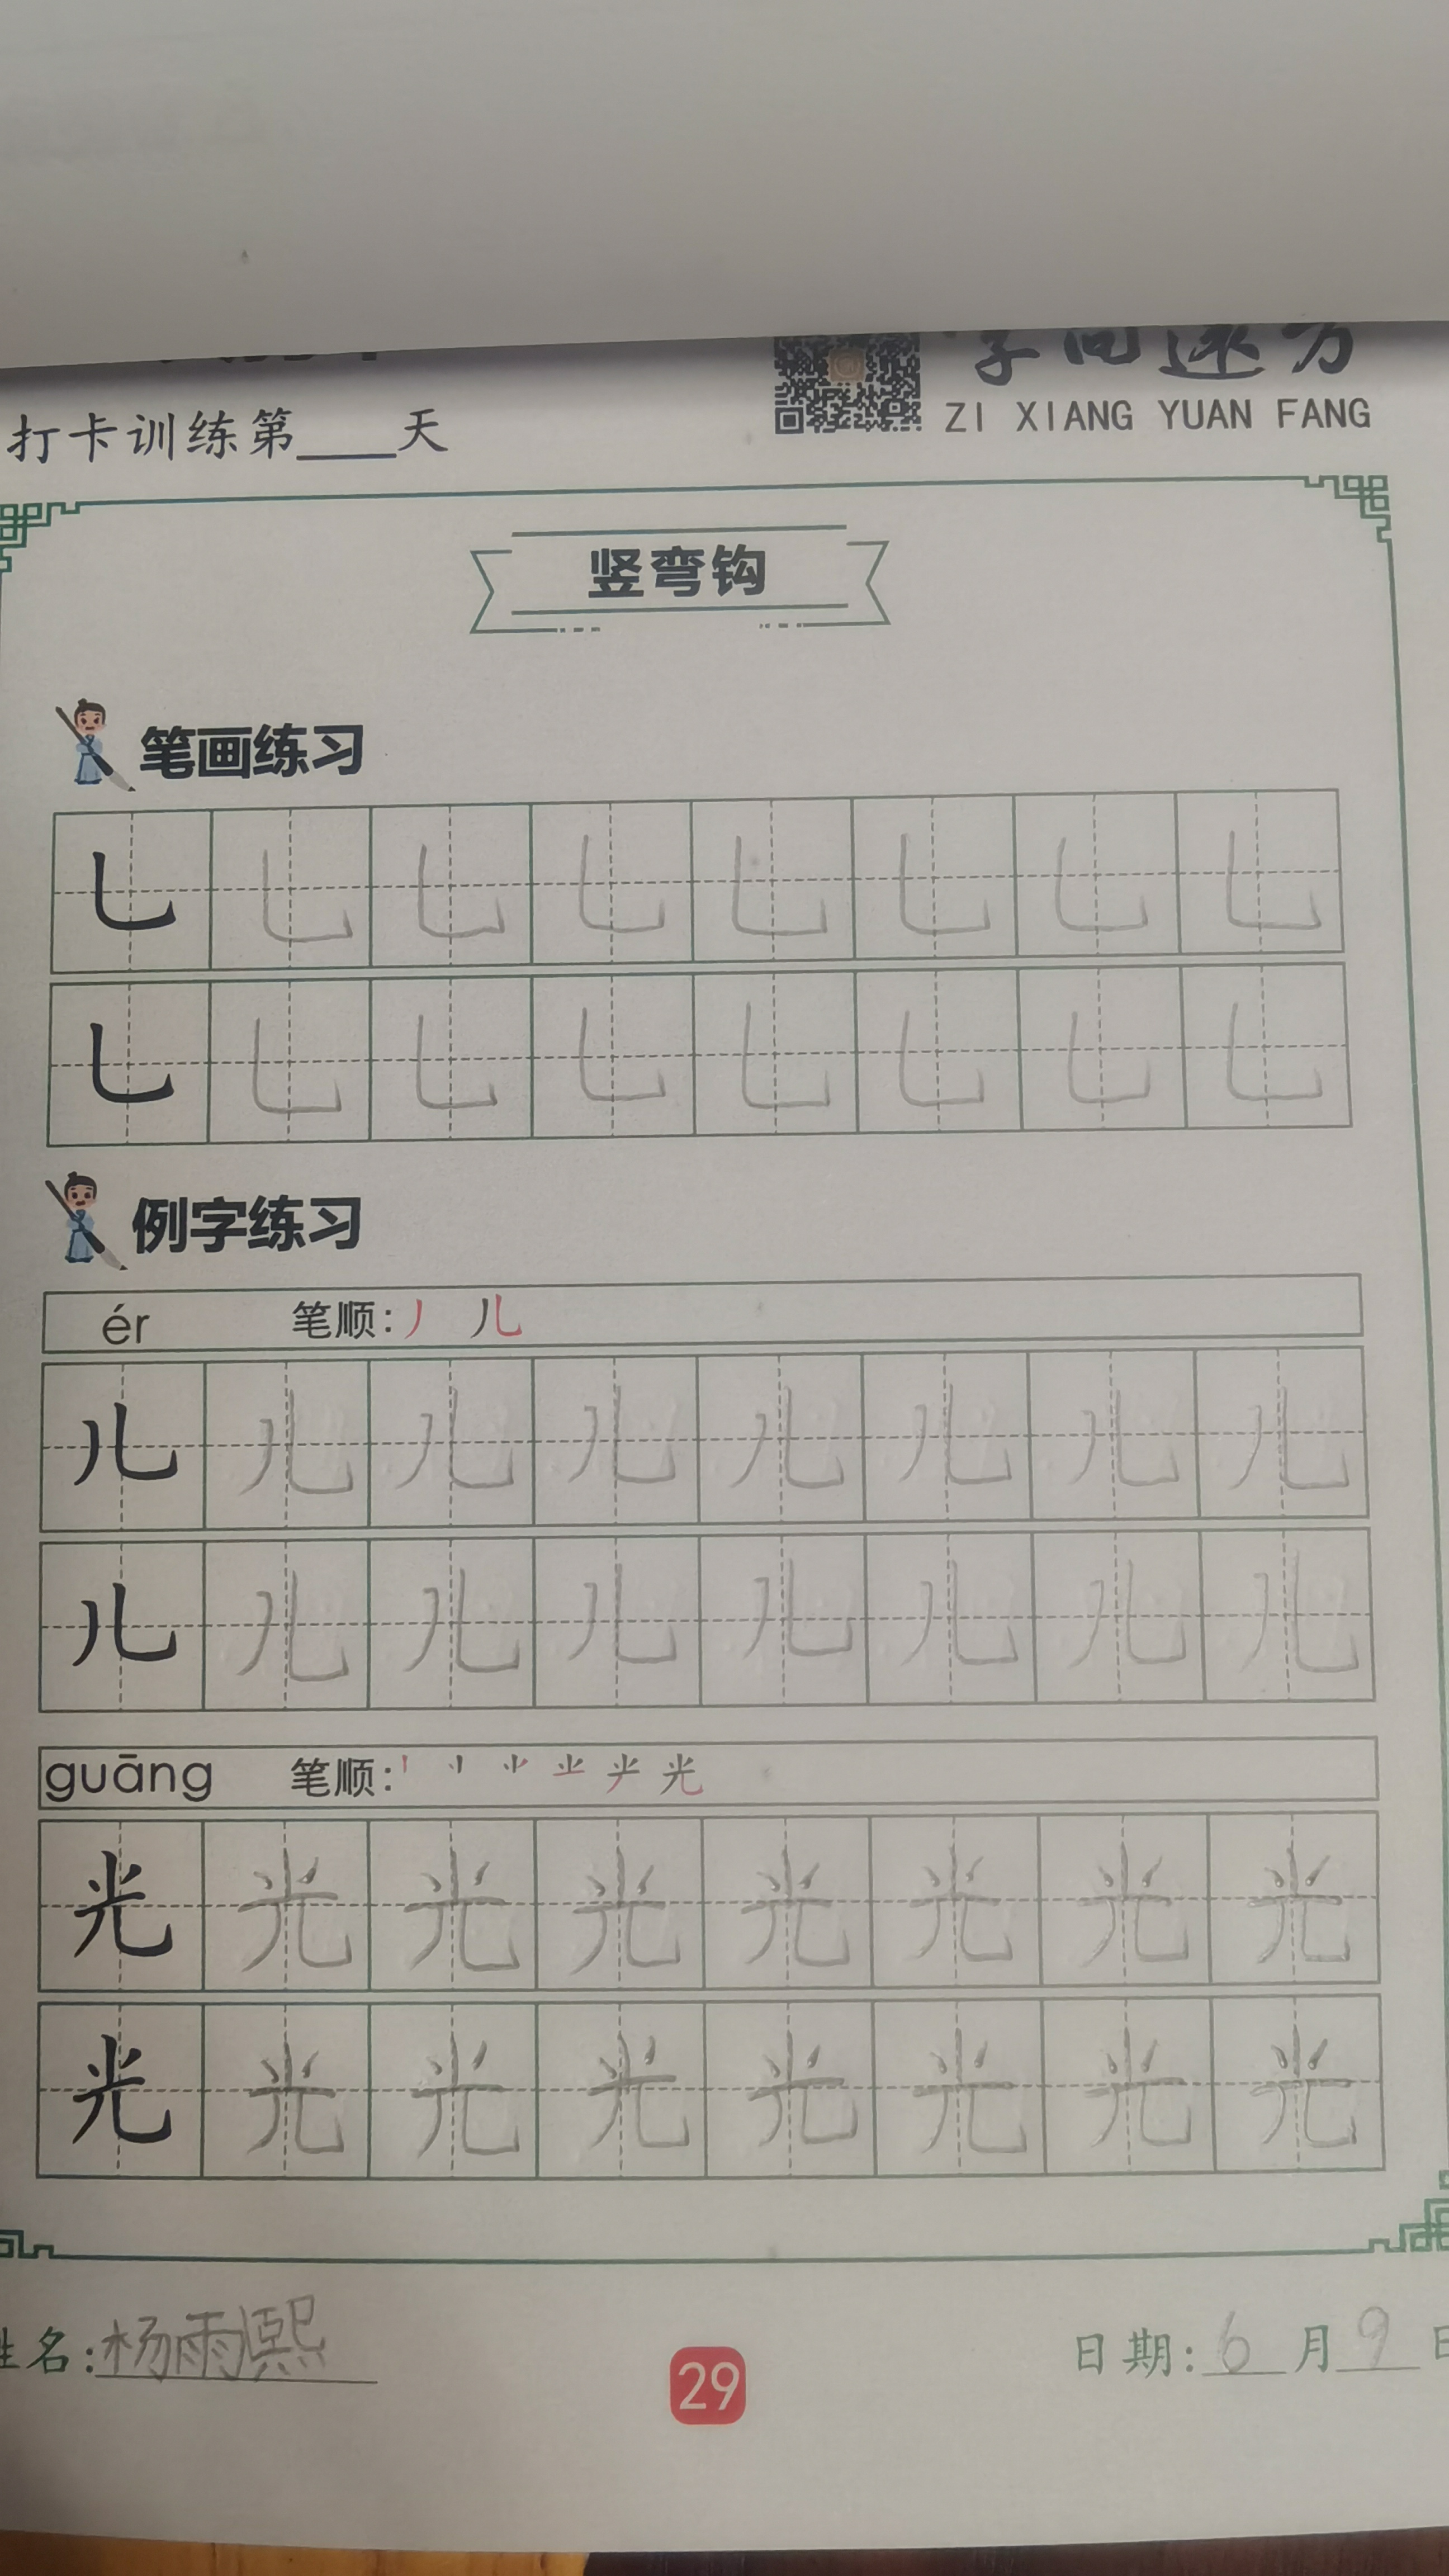 字向远方
ZI XIANG YUAN FANG
打卡训练第____天
竖弯钩
笔画练习
㇟ ㇟ ㇟ ㇟ ㇟ ㇟ ㇟ ㇟
㇟ ㇟ ㇟ ㇟ ㇟ ㇟ ㇟ ㇟
例字练习
ér 笔顺:丿 儿
儿 儿 儿 儿 儿 儿 儿 儿
儿 儿 儿 儿 儿 儿 儿 儿
guāng 笔顺: 光
光 光 光 光 光 光 光 光
光 光 光 光 光 光 光 光
姓名:杨雨熙 29 日期:6月9日